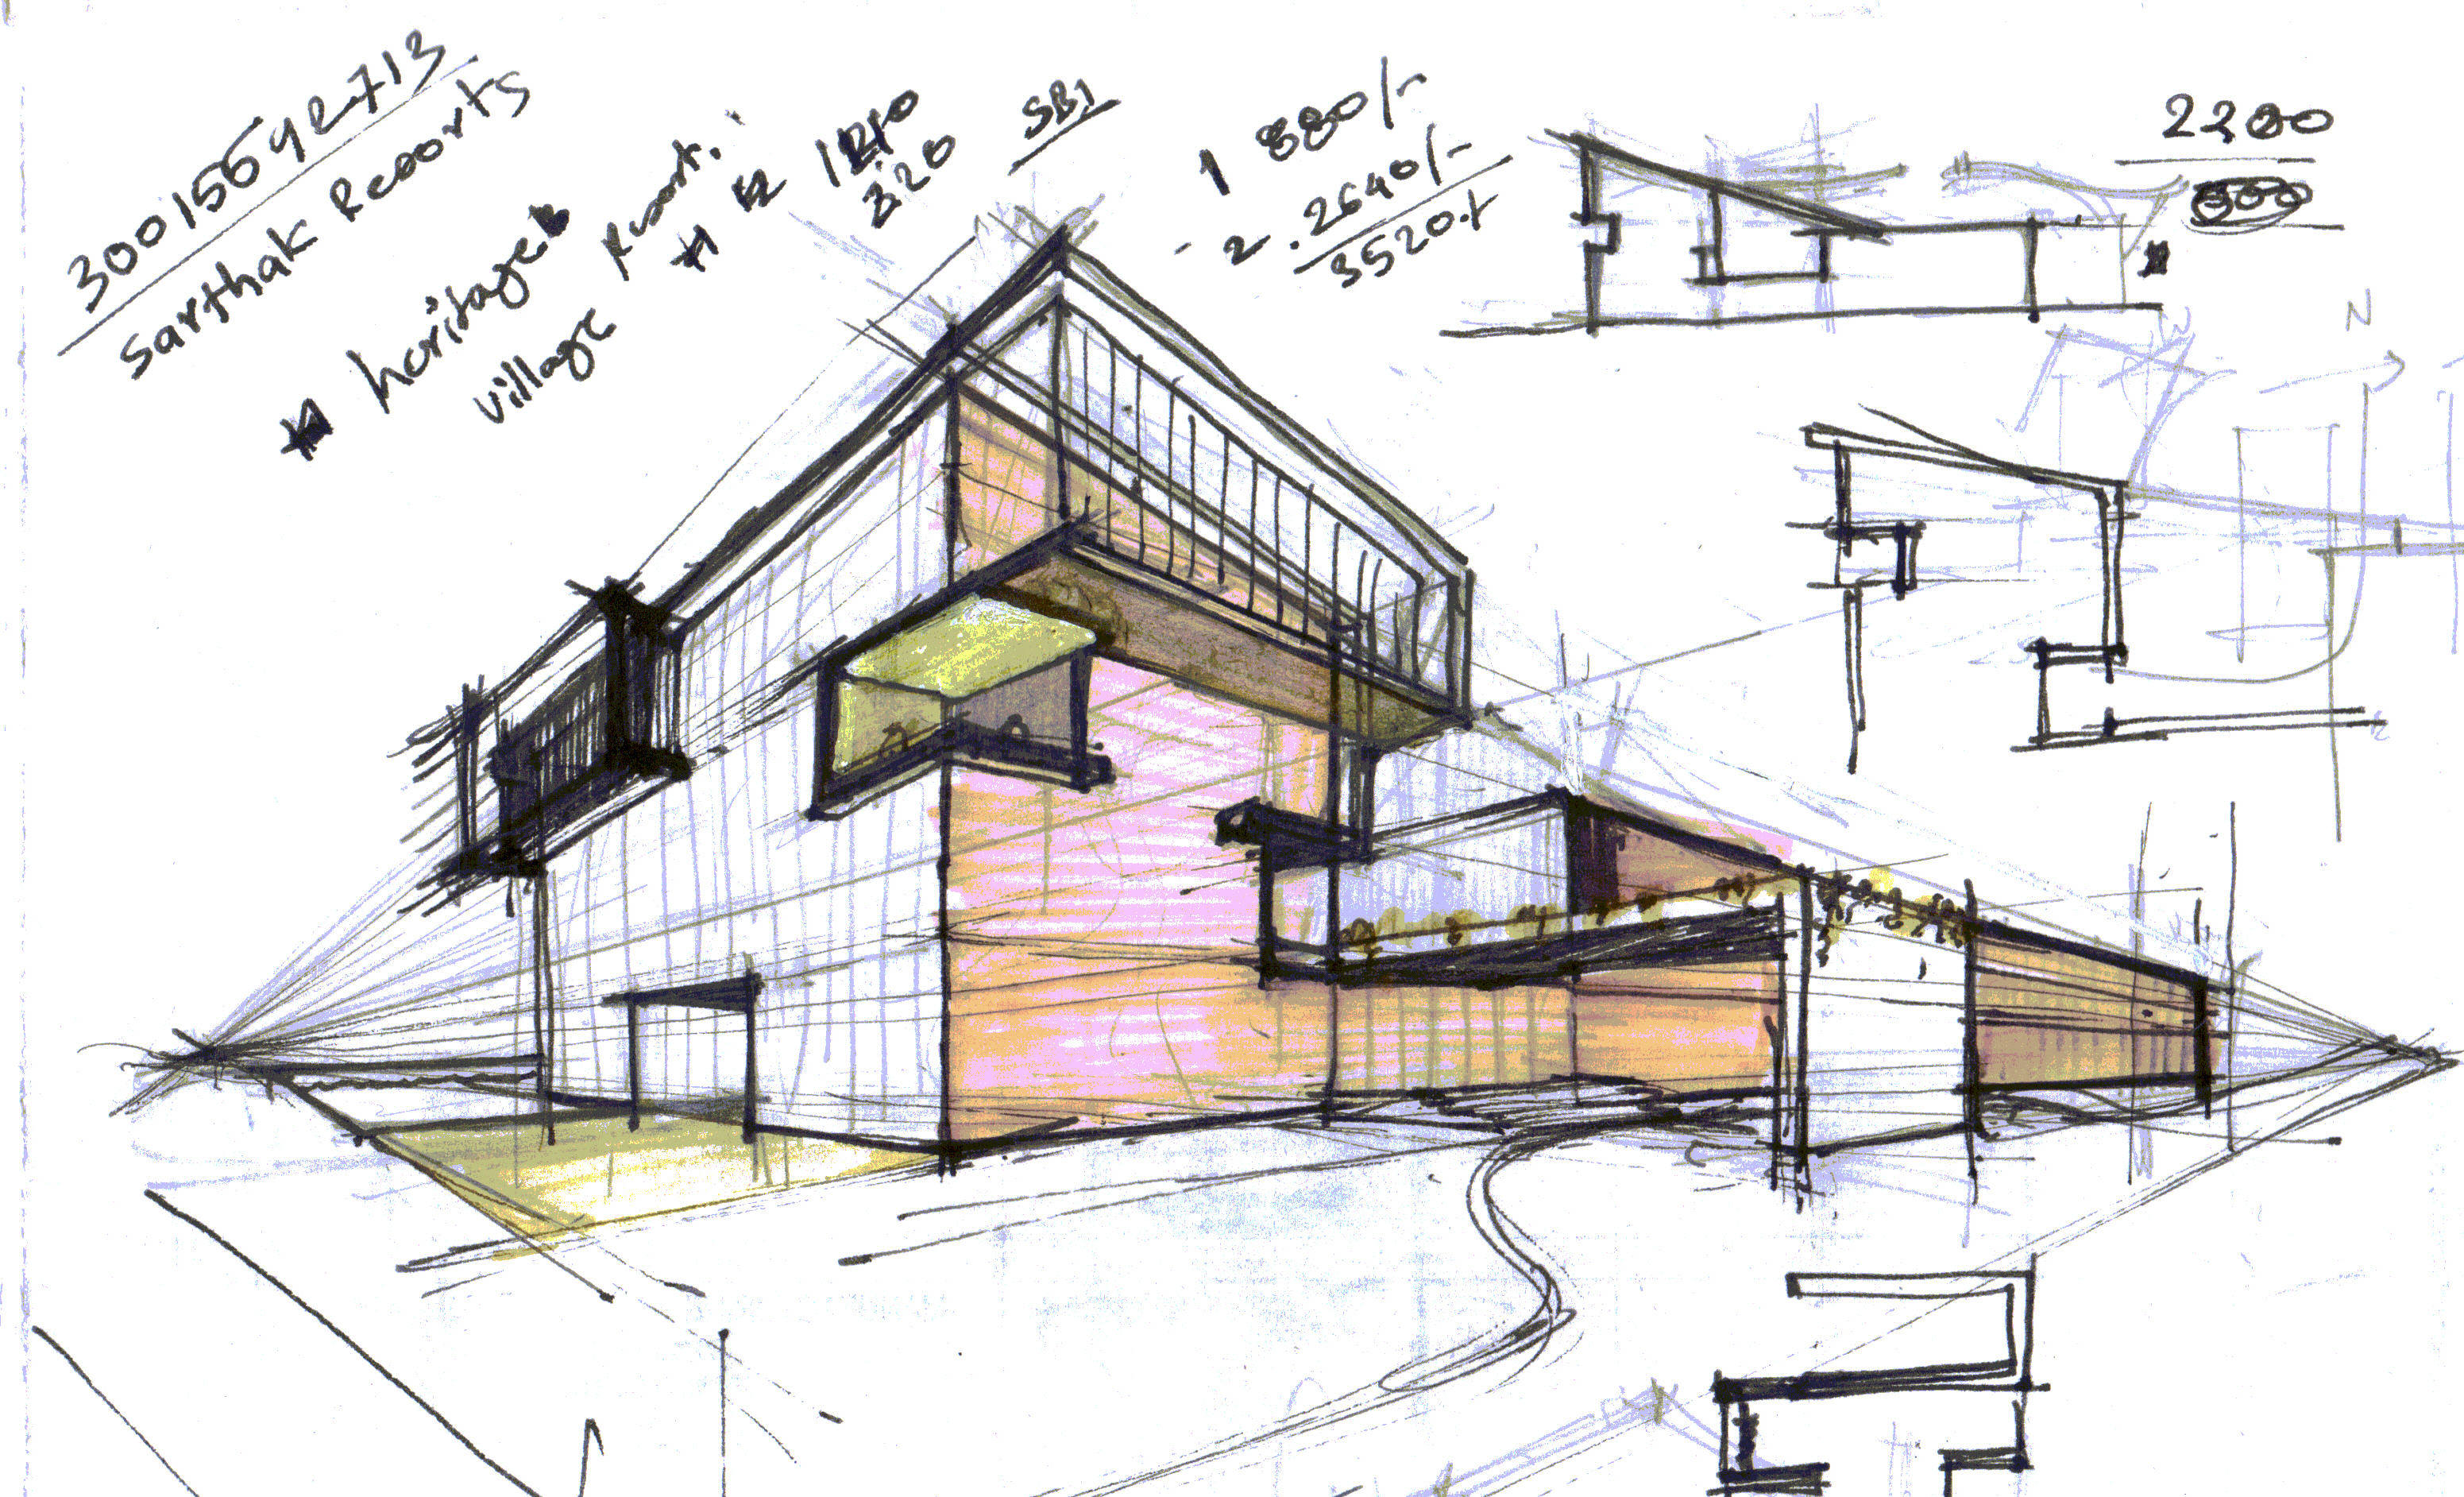 300155642713
Sarthak Resorts
heritage
village Resort.
320
SBI
1 880/-
2. 2640/-
3520/-
2200
N